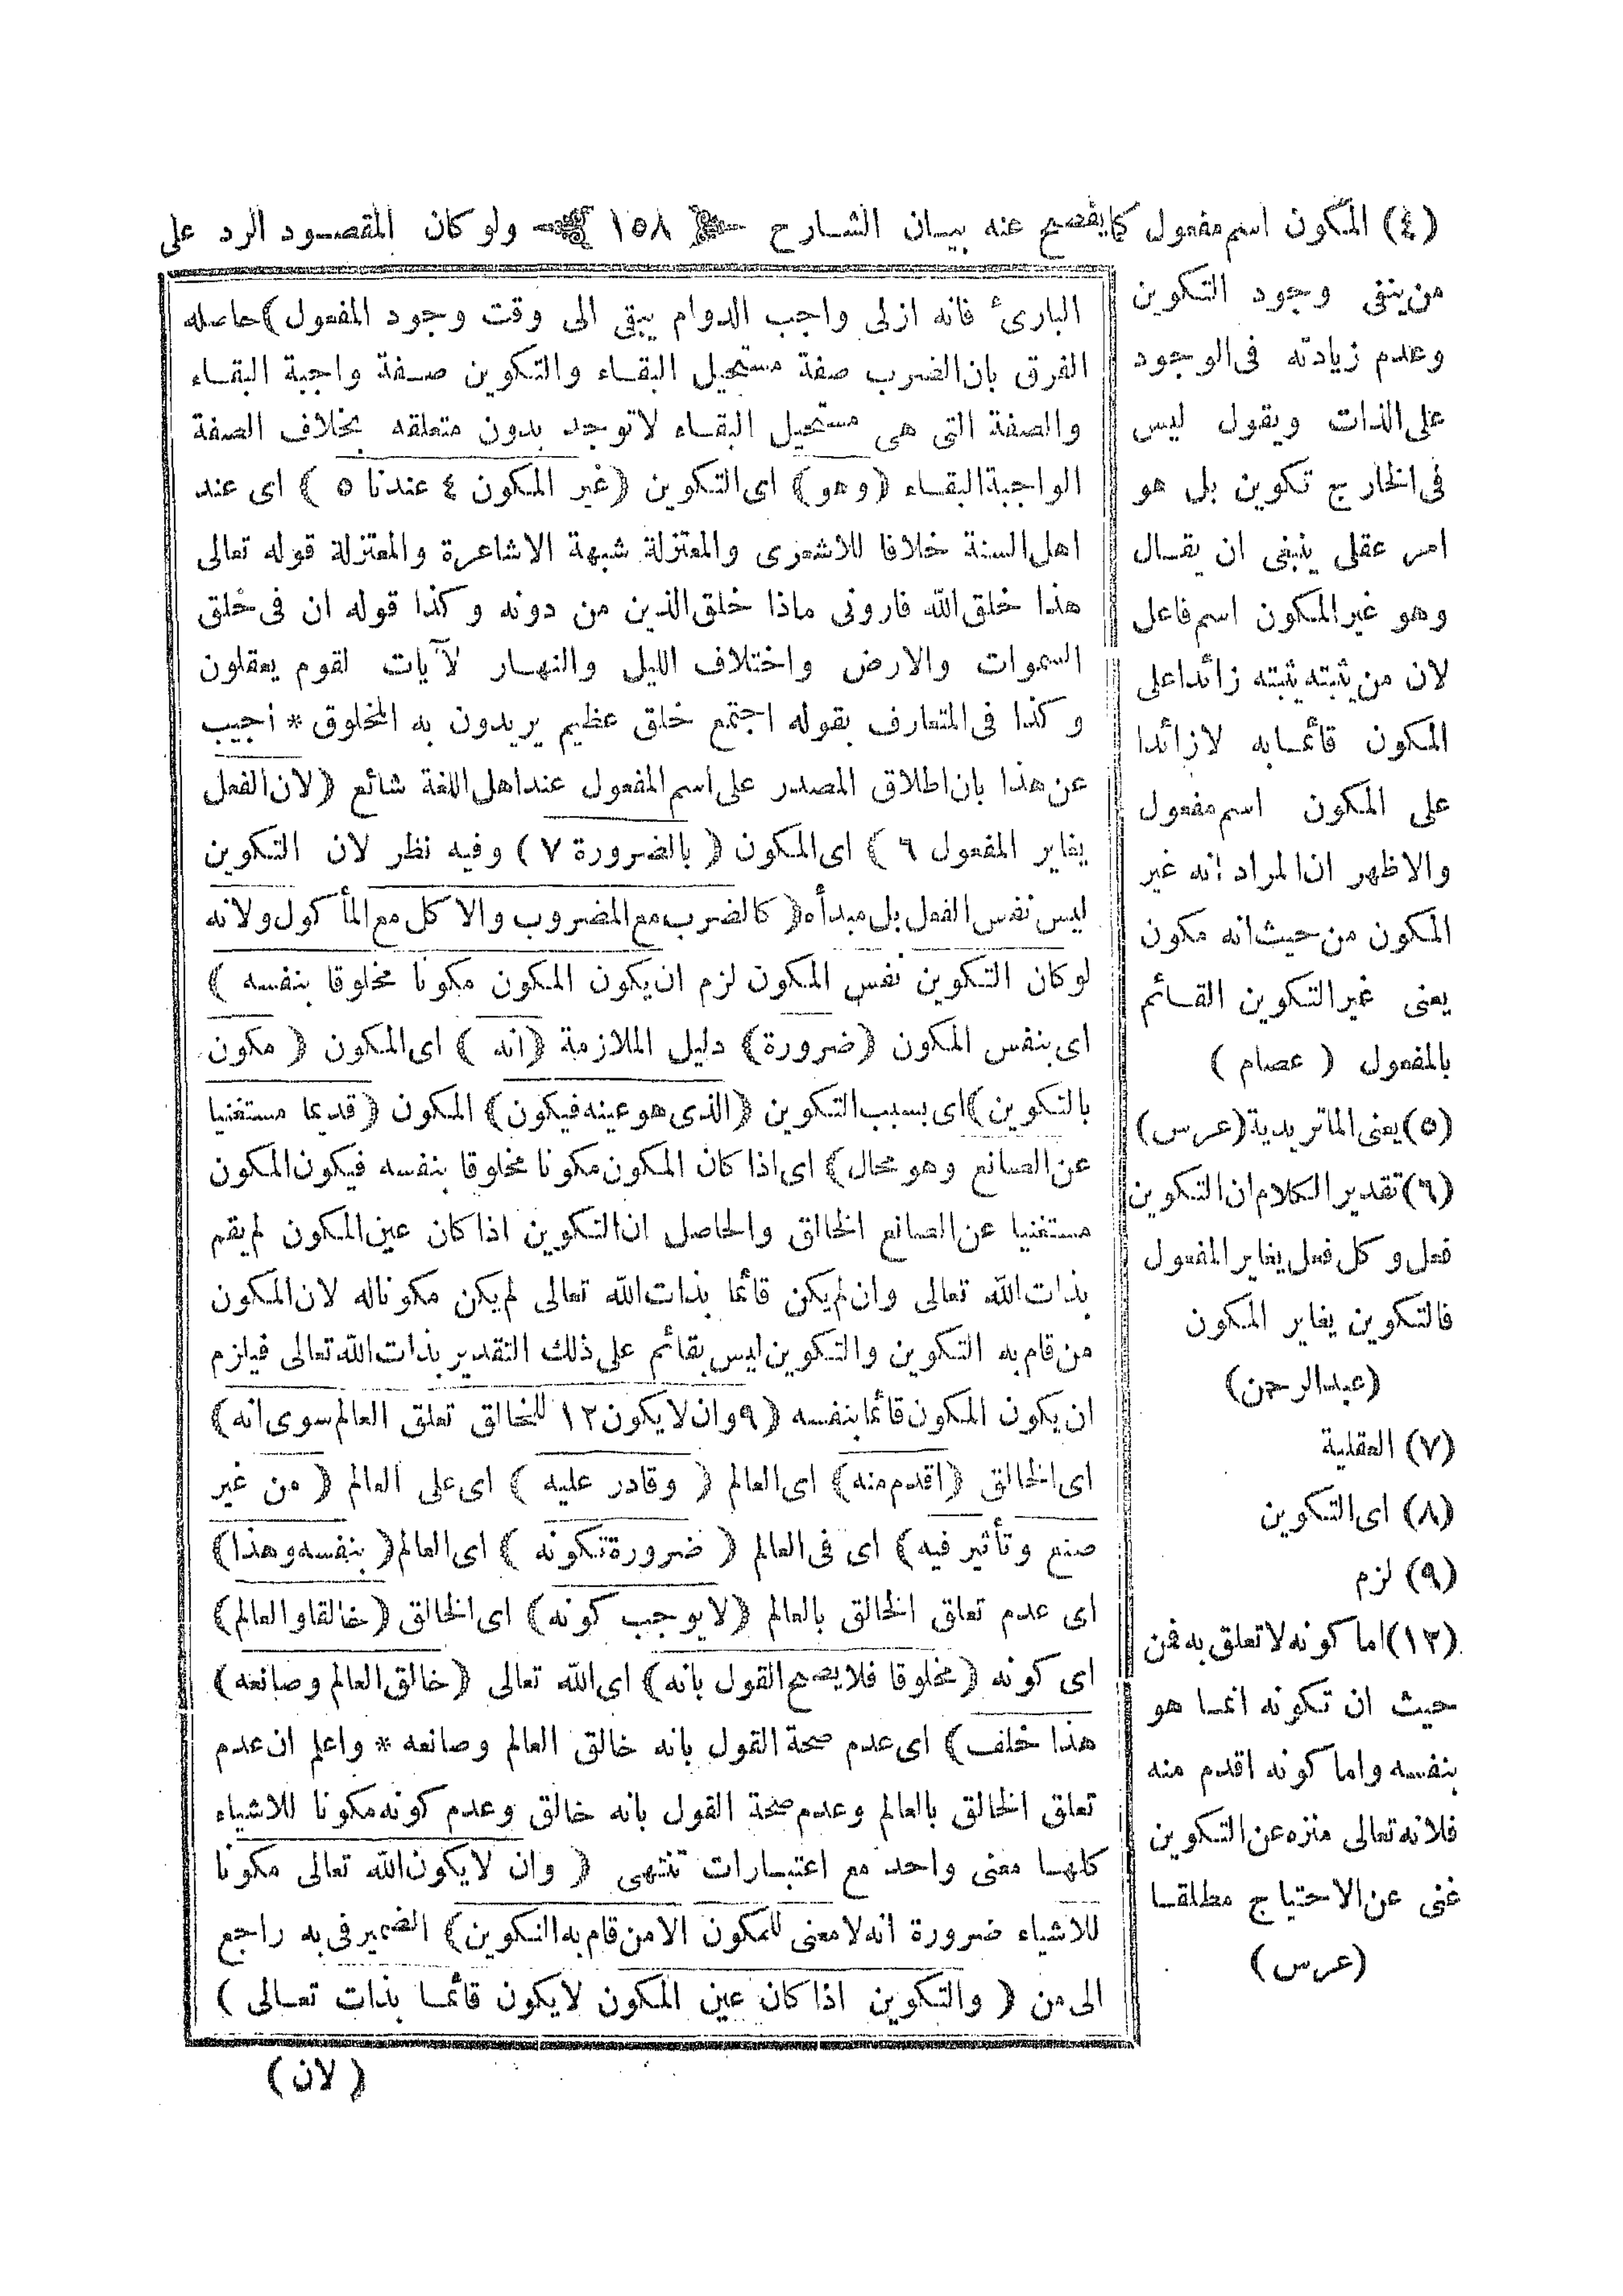 (٤) المكون اسم مفعول كما يفصح عنه بيـان الشـارح ﴿ ١٥٨ ﴾ ولو كان المقصـود الرد على
من ينفى وجود التكوين
وعدم زيادته فى الوجود
على الذات ويقول ليس
فى الخارج تكوين بل هو
امر عقلى ينبغى ان يقـال
وهو غير المكون اسم فاعل
لان من يثبته يثبته زائدا على
المكون قائمـا به لا زائدا
على المكون اسم مفعول
والاظهر ان المراد انه غير
المكون من حيث انه مكون
يعنى غير التكوين القـائم
بالمفعول ( عصام )
(٥) يعنى الماتريدية (عرس)
(٦) تقدير الكلام ان التكوين
فعل وكل فعل يغاير المفعول
فالتكوين يغاير المكون
(عبد الرحمن)
(٧) العقلية
(٨) اى التكوين
(٩) لزم
(١٢) اما كونه لا تعلق به فمن
حيث ان تكونه انمـا هو
بنفسه واما كونه اقدم منه
فلانه تعالى منزه عن التكوين
غنى عن الاحتياج مطلقـا
(عرس)
البارئ فانه ازلى واجب الدوام يبقى الى وقت وجود المفعول ﴾ حاصله
الفرق بان الضرب صفة مستحيل البقـاء والتكوين صـفة واجبة البقـاء
والصفة التى هى مستحيل البقـاء لا توجد بدون متعلقه بخلاف الصفة
الواجبة البقـاء ﴿ وهو ﴾ اى التكوين ﴿ غير المكون ٤ عندنا ٥ ﴾ اى عند
اهل السنة خلافا للاشعرى والمعتزلة شبهة الاشاعرة والمعتزلة قوله تعالى
هذا خلق الله فارونى ماذا خلق الذين من دونه وكذا قوله ان فى خلق
السموات والارض واختلاف الليل والنهـار لآيات لقوم يعقلون
وكذا فى المتعارف بقوله اجتمع خلق عظيم يريدون به المخلوق * اجيب
عن هذا بان اطلاق المصدر على اسم المفعول عند اهل اللغة شائع ﴿ لان الفعل
يغاير المفعول ٦ ﴾ اى المكون ﴿ بالضرورة ٧ ﴾ وفيه نظر لان التكوين
ليس نفس الفعل بل مبدأه ﴿ كالضرب مع المضروب والاكل مع المأكول ولانه
لو كان التكوين نفس المكون لزم ان يكون المكون مكونا مخلوقا بنفسه ﴾
اى بنفس المكون ﴿ ضرورة ﴾ دليل الملازمة ﴿ انه ﴾ اى المكون ﴿ مكون
بالتكوين ﴾ اى بسبب التكوين ﴿ الذى هو عينه فيكون ﴾ المكون ﴿ قديما مستغنيا
عن الصانع وهو محال ﴾ اى اذا كان المكون مكونا مخلوقا بنفسه فيكون المكون
مستغنيا عن الصانع الخالق والحاصل ان التكوين اذا كان عين المكون لم يقم
بذات الله تعالى وان لم يكن قائما بذات الله تعالى لم يكن مكونا له لان المكون
من قام به التكوين والتكوين ليس بقائم على ذلك التقدير بذات الله تعالى فيلزم
ان يكون المكون قائما بنفسه ﴿ ٩ وان لا يكون ١٢ للخالق تعلق العالم سوى انه ﴾
اى الخالق ﴿ اقدم منه ﴾ اى العالم ﴿ وقادر عليه ﴾ اى على العالم ﴿ من غير
صنع وتأثير فيه ﴾ اى فى العالم ﴿ ضرورة تكونه ﴾ اى العالم ﴿ بنفسه وهذا ﴾
اى عدم تعلق الخالق بالعالم ﴿ لا يوجب كونه ﴾ اى الخالق ﴿ خالقا والعالم ﴾
اى كونه ﴿ مخلوقا فلا يصح القول بانه ﴾ اى الله تعالى ﴿ خالق العالم وصانعه ﴾
هذا خلف ﴾ اى عدم صحة القول بانه خالق العالم وصانعه * واعلم ان عدم
تعلق الخالق بالعالم وعدم صحة القول بانه خالق وعدم كونه مكونا للاشياء
كلهـا معنى واحد مع اعتبـارات تنتهى ﴿ وان لا يكون الله تعالى مكونا
للاشياء ضرورة انه لا معنى للمكون الا من قام به التكوين ﴾ الضمير فى به راجع
الى من ﴿ والتكوين اذا كان عين المكون لا يكون قائمـا بذات تعـالى ﴾
( لان )